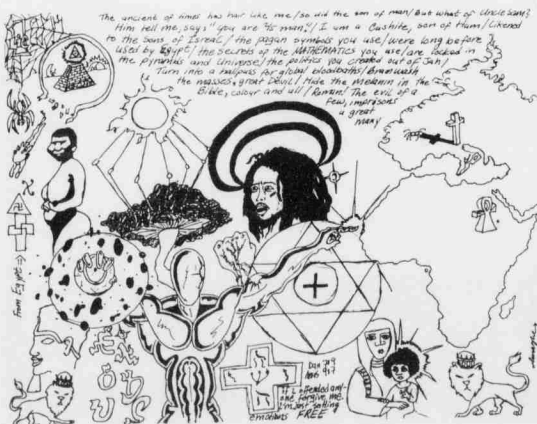 The ancient of times has hair like me/so did the son of man/But what of Uncle Sam?
Him tell me, says "you are 3/5 man?/ I am a Cushite, son of Ham/Likened
to the seed of Israel,/ the pagan symbols you use/were long before
used by Egypt/the secrets of the MATHEMATICS you use/are locked in
the pyramids and Universe/the politics you created out of San/
Turn into a for global bloodbaths/Brainwash
the masses, great Devil/Hide the melanin in the
Bible, colour and all/Roman! The evil of a
few, imprisons
a great
many
from Egypt
Dan 7v9
If I offended any-
one forgive me.
I'm just setting
emotions FREE